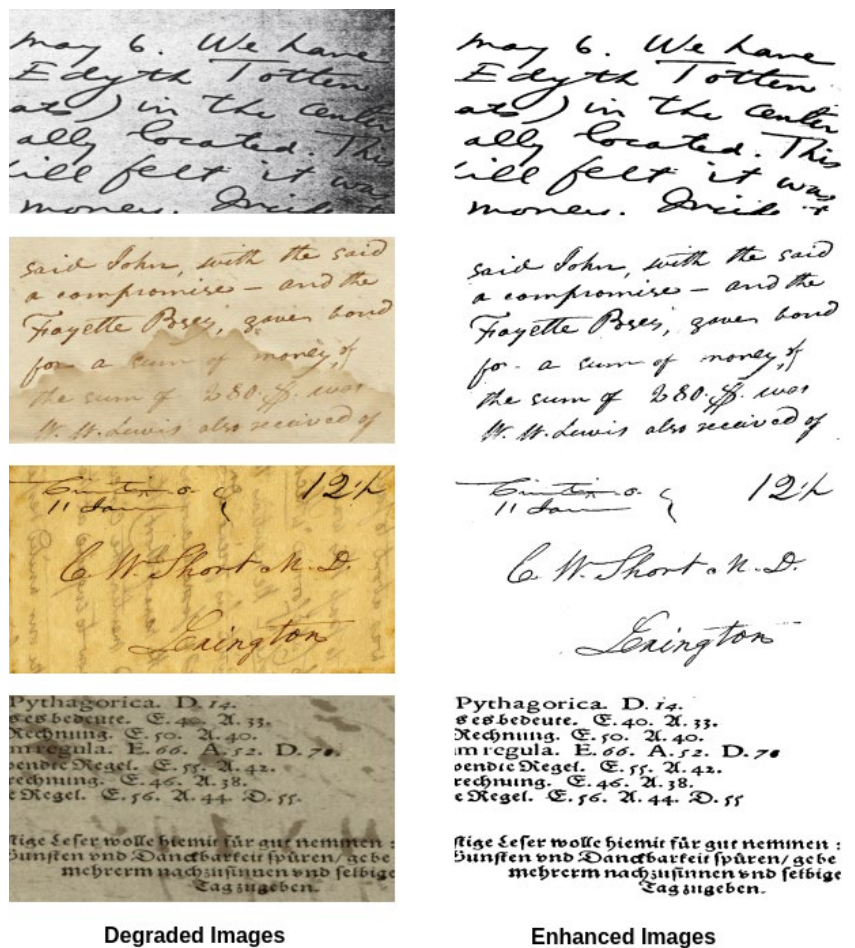 may 6. We have
Edyth Totten
ats) in the center
ally located. This
ill felt it was
money.
said John, with the said
a compromise – and the
Fayette Posey, gave bond
for a sum of money, of
the sum of 280.$. was
W. W. Lewis also received of
12½
11 Jan
C. W. Short M. D.
Lexington
Pythagorica. D. 14.
s es bedeute. E. 40. A. 33.
Rechnung. E. 50. A. 40.
m regula. E. 66. A. 52. D. 70.
bendte Regel. E. 55. A. 42.
rechnung. E. 46. A. 38.
e Regel. E. 56. A. 44. D. 55.
stige Leser wolle hiemit für gut nemmen :
Gunsten vnd Danckbarkeit spüren/ gebe
mehrerm nachzusinnen vnd selbige
Tag zugeben.
may 6. We have
Edyth Totten
ats) in the center
ally located. This
ill felt it was
money.
said John, with the said
a compromise – and the
Fayette Posey, gave bond
for a sum of money, of
the sum of 280.$. was
W. W. Lewis also received of
12½
11 Jan
C. W. Short M. D.
Lexington
Pythagorica. D. 14.
s es bedeute. E. 40. A. 33.
Rechnung. E. 50. A. 40.
m regula. E. 66. A. 52. D. 70
bendte Regel. E. 55. A. 42.
rechnung. E. 46. A. 38.
e Regel. E. 56. A. 44. D. 55
stige Leser wolle hiemit für gut nemmen :
Gunsten vnd Danckbarkeit spüren/ gebe
mehrerm nachzusinnen vnd selbige
Tag zugeben.
Degraded Images
Enhanced Images